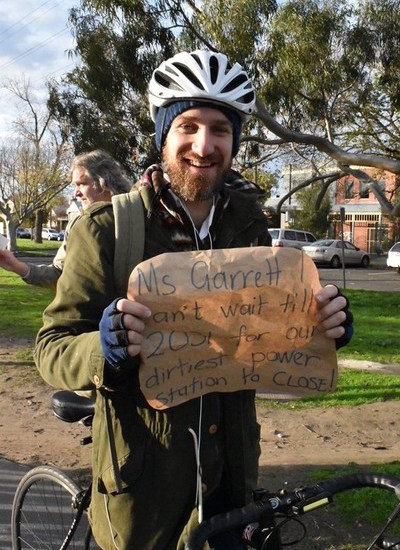 Ms Garrett I
can't wait till
2031 for our
dirtiest power
station to CLOSE!